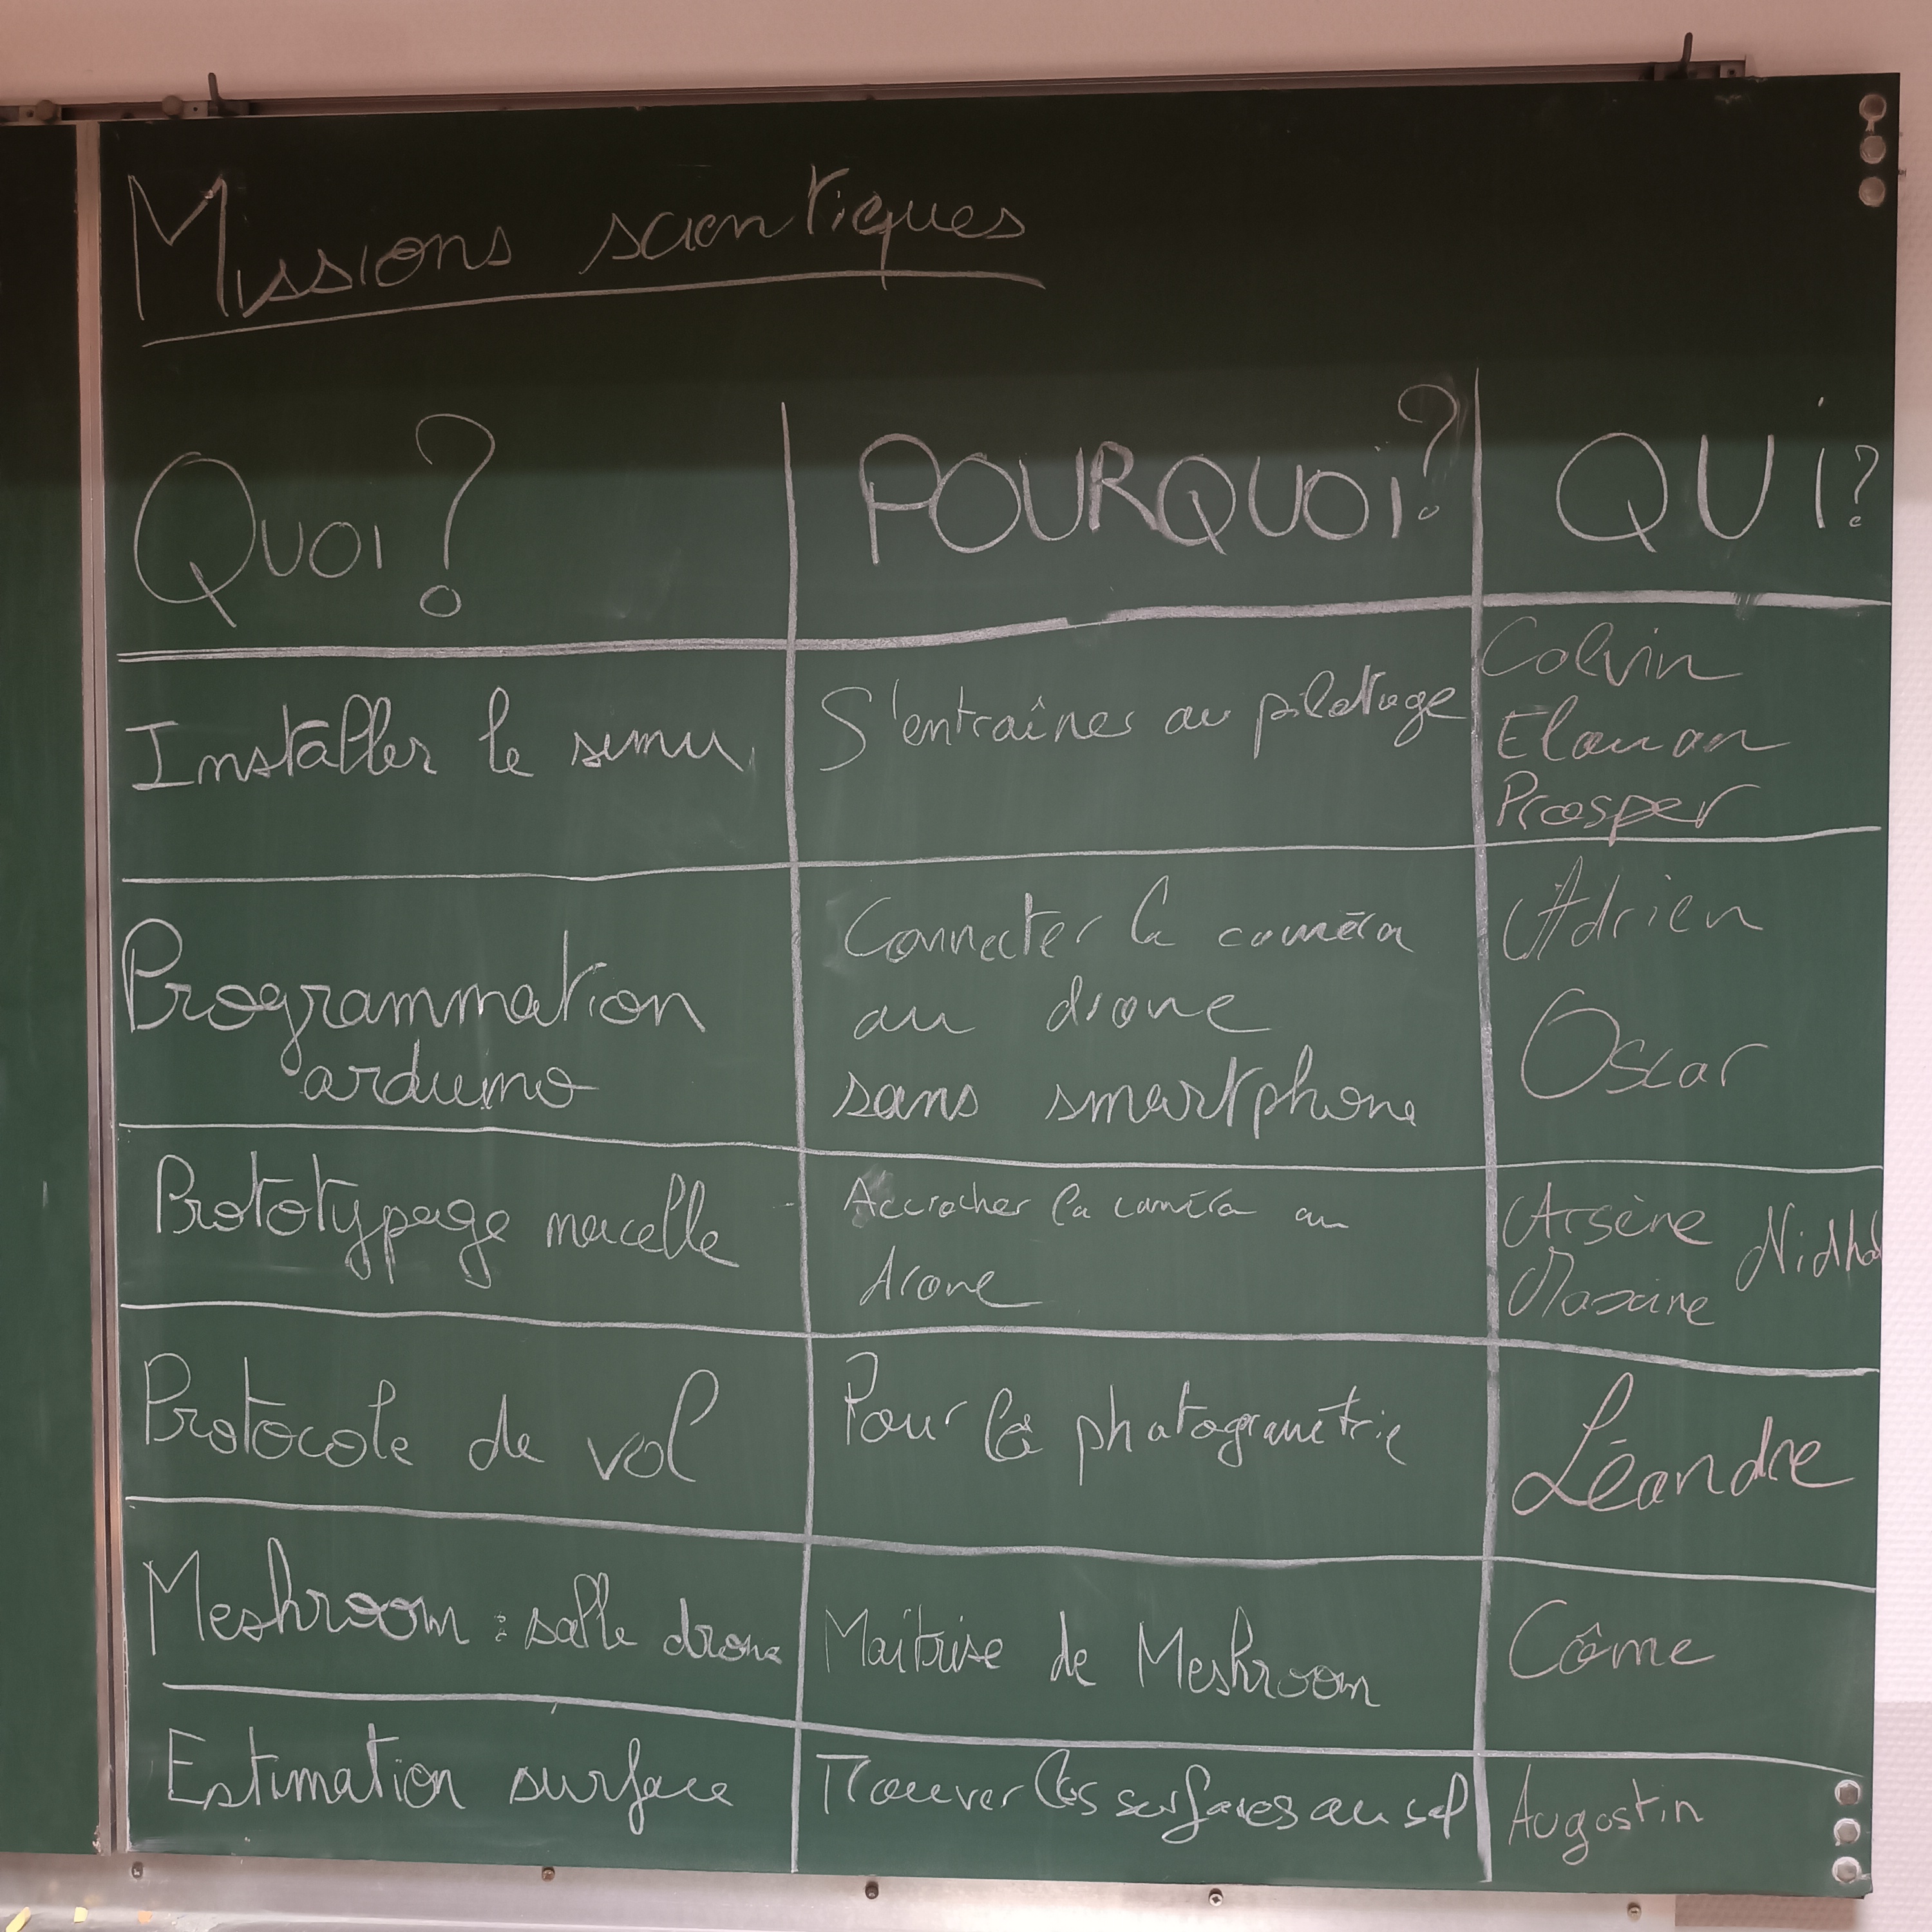 Missions scientiques
Quoi?
POURQUOi?
QUi?
Installer le simu
S'entraîner au pilotage
Calvin
Elouan
Prosper
Programmation
arduino
Connecter la caméra
au drone
sans smartphone
Adrien
Oscar
Prototypage nacelle
Accrocher la caméra au
drone
Arsène
Maxine
Nidhal
Protocole de vol
Pour la photogramétrie
Léandre
Meshroom : salle drone
Maîtrise de Meshroom
Côme
Estimation surface
Trouver les surfaces au sol
Augustin